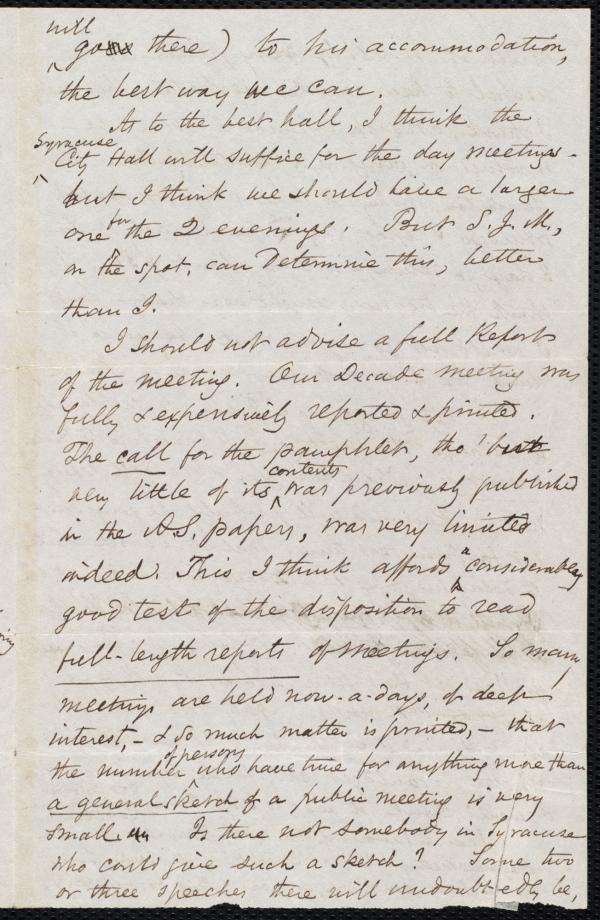 will
go there) to his accommodation,
the best way we can.
As to the best hall, I think the
Syracuse
City Hall will suffice for the day meetings -
but I think we should have a larger
one for the 2 evenings. But S. J. M.,
on the spot, can determine this, better
than I.
I should not advise a full Report
of the meeting. Our Decade meeting was
fully & expensively reported & printed.
The call for the pamphlet, tho' but
very little of its contents was previously published
in the A.S. papers, was very limited
indeed. This I think affords a considerably
good test of the disposition to read
full-length reports of meetings. So many
meetings are held now-a-days, of deep
interest, - & so much matter is printed, - that
the number of persons who have time for anything more than
a general sketch of a public meeting is very
small. Is there not somebody in Syracuse
who could give such a sketch? Some two
or three speeches there will undoubtedly be,